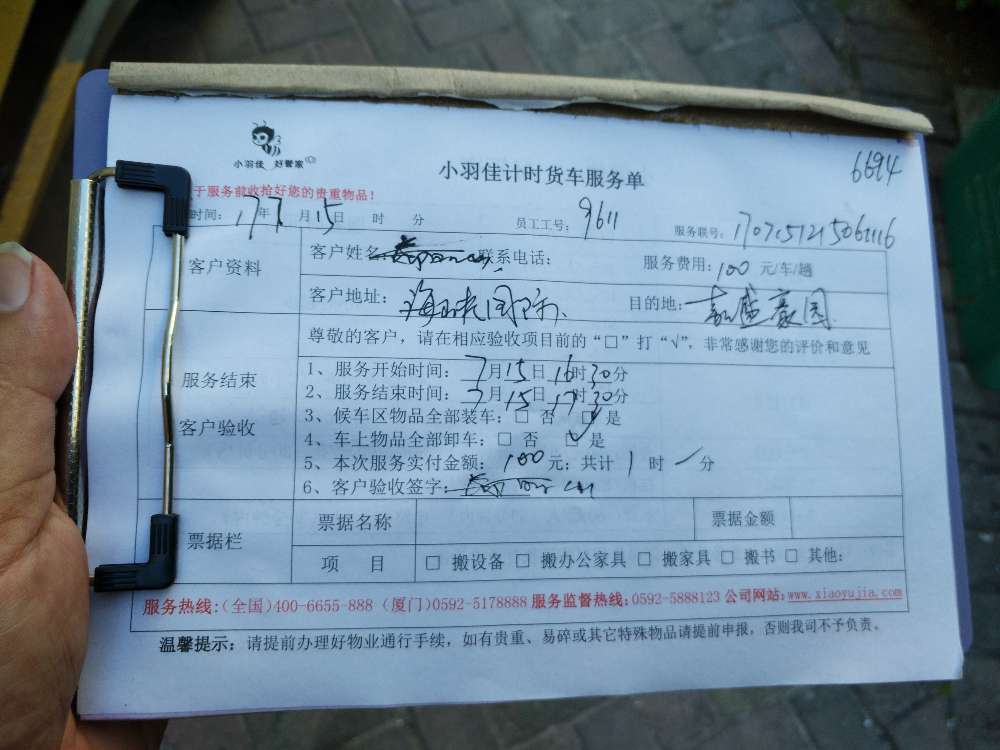 小羽佳 好管家
小羽佳计时货车服务单
6694
于服务前收拾好您的贵重物品!
时间: 17年7月15日 时 分 员工工号: 9611 服务联号: 170715121506
客户资料
客户姓名 联系电话: 服务费用: 100 元/车/趟
客户地址: 国际 目的地: 嘉盛豪园
服务结束
客户验收
尊敬的客户, 请在相应验收项目前的“□”打“√”, 非常感谢您的评价和意见
1、服务开始时间: 7月15日16时30分
2、服务结束时间: 7月15日17时30分
3、候车区物品全部装车: □ 否 □ 是
4、车上物品全部卸车: □ 否 □ 是
5、本次服务实付金额: 100 元; 共计 1 时 分
6、客户验收签字:
票据栏
票据名称 票据金额
项 目 □ 搬设备 □ 搬办公家具 □ 搬家具 □ 搬书 □ 其他:
服务热线:(全国)400-6655-888 (厦门)0592-5178888 服务监督热线:0592-5888123 公司网站:www.xiaoyujia.com
温馨提示: 请提前办理好物业通行手续, 如有贵重、易碎或其它特殊物品请提前申报, 否则我司不予负责。